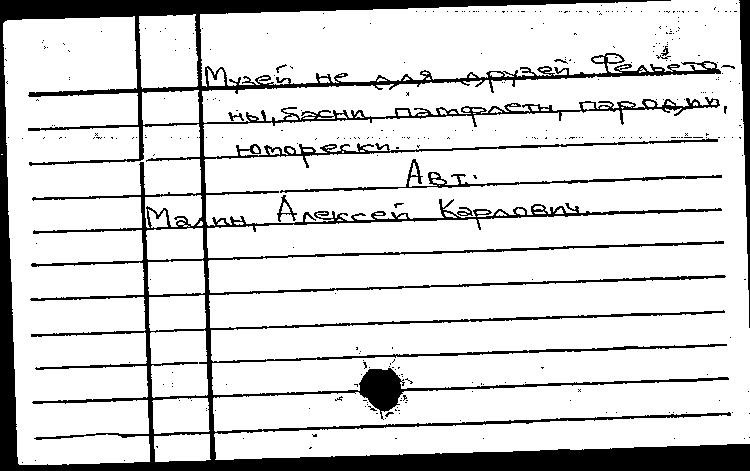 Музей не для друзей. Фельето-
ны, басни, памфлеты, пародии,
юморески.
Авт.
Малин, Алексей Карлович.